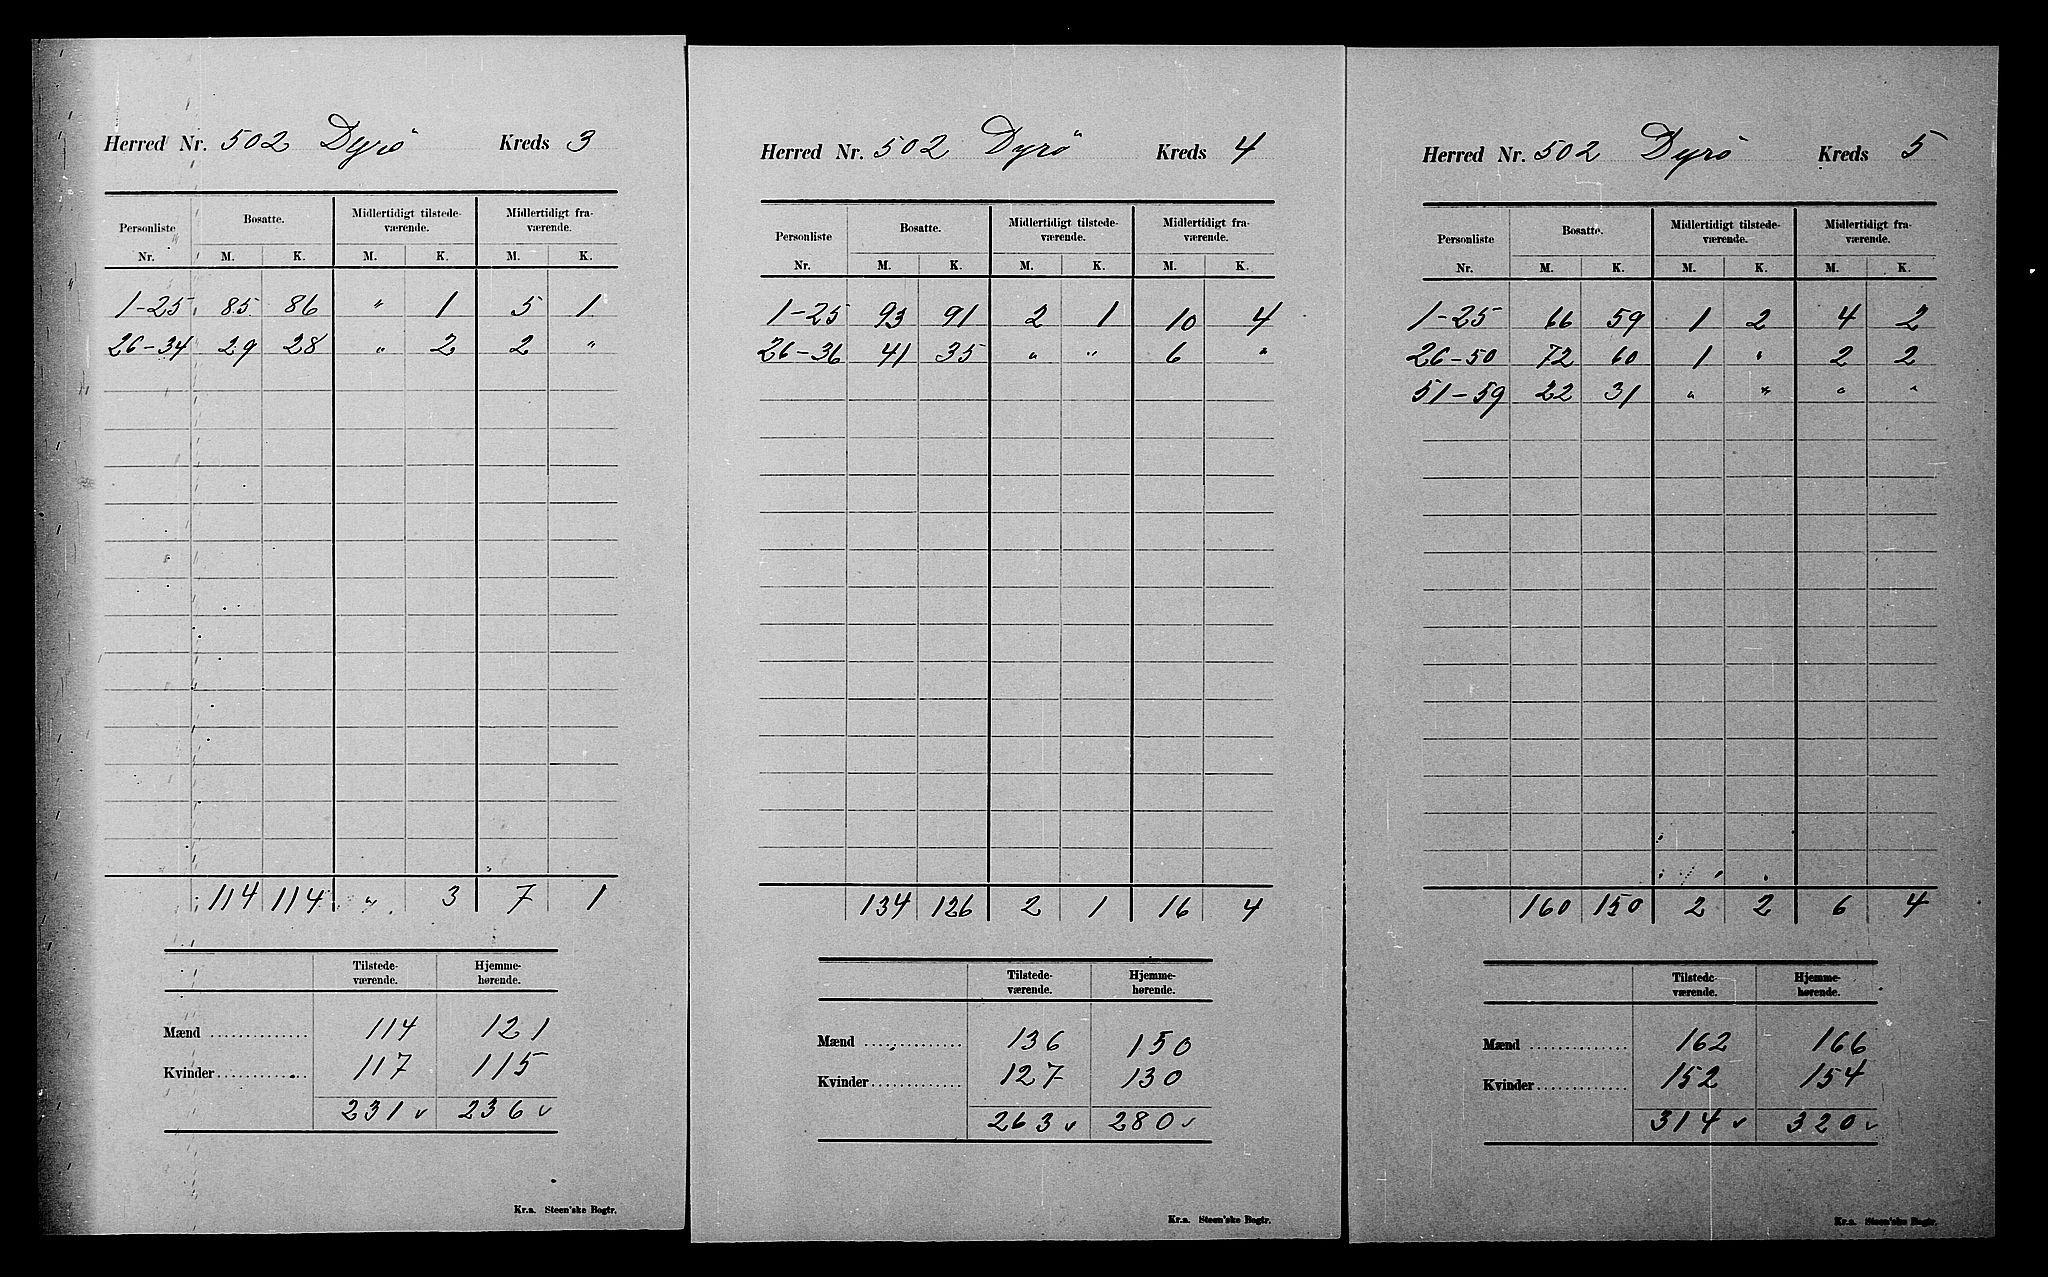 Herred Nr. 502 Dyrö Kreds 3
Personliste Bosatte. Midlertidigt tilstede- Midlertidigt fra-
værende. værende.
Nr. M. K. M. K. M. K.
1-25 85 86 " 1 5 1
26-34 29 28 " 2 2 "
114 114 " 3 7 1
Tilstede- Hjemme-
værende. hørende.
Mænd .......... 114 121
Kvinder .......... 117 115
231 v 236 v
Kr.a. Steen'ske Bogtr.
Herred Nr. 502 Dyrö Kreds 4
Personliste Bosatte. Midlertidigt tilstede- Midlertidigt fra-
værende. værende.
Nr. M. K. M. K. M. K.
1-25 93 91 2 1 10 4
26-36 41 35 " " 6 "
134 126 2 1 16 4
Tilstede- Hjemme-
værende. hørende.
Mænd .......... 136 150
Kvinder .......... 127 130
263 v 280 v
Kr.a. Steen'ske Bogtr.
Herred Nr. 502 Dyrö Kreds 5
Personliste Bosatte. Midlertidigt tilstede- Midlertidigt fra-
værende. værende.
Nr. M. K. M. K. M. K.
1-25 66 59 1 2 4 2
26-50 72 60 1 " 2 2
51-59 22 31 " " " "
160 150 2 2 6 4
Tilstede- Hjemme-
værende. hørende.
Mænd .......... 162 166
Kvinder .......... 152 154
314 v 320 v
Kr.a. Steen'ske Bogtr.